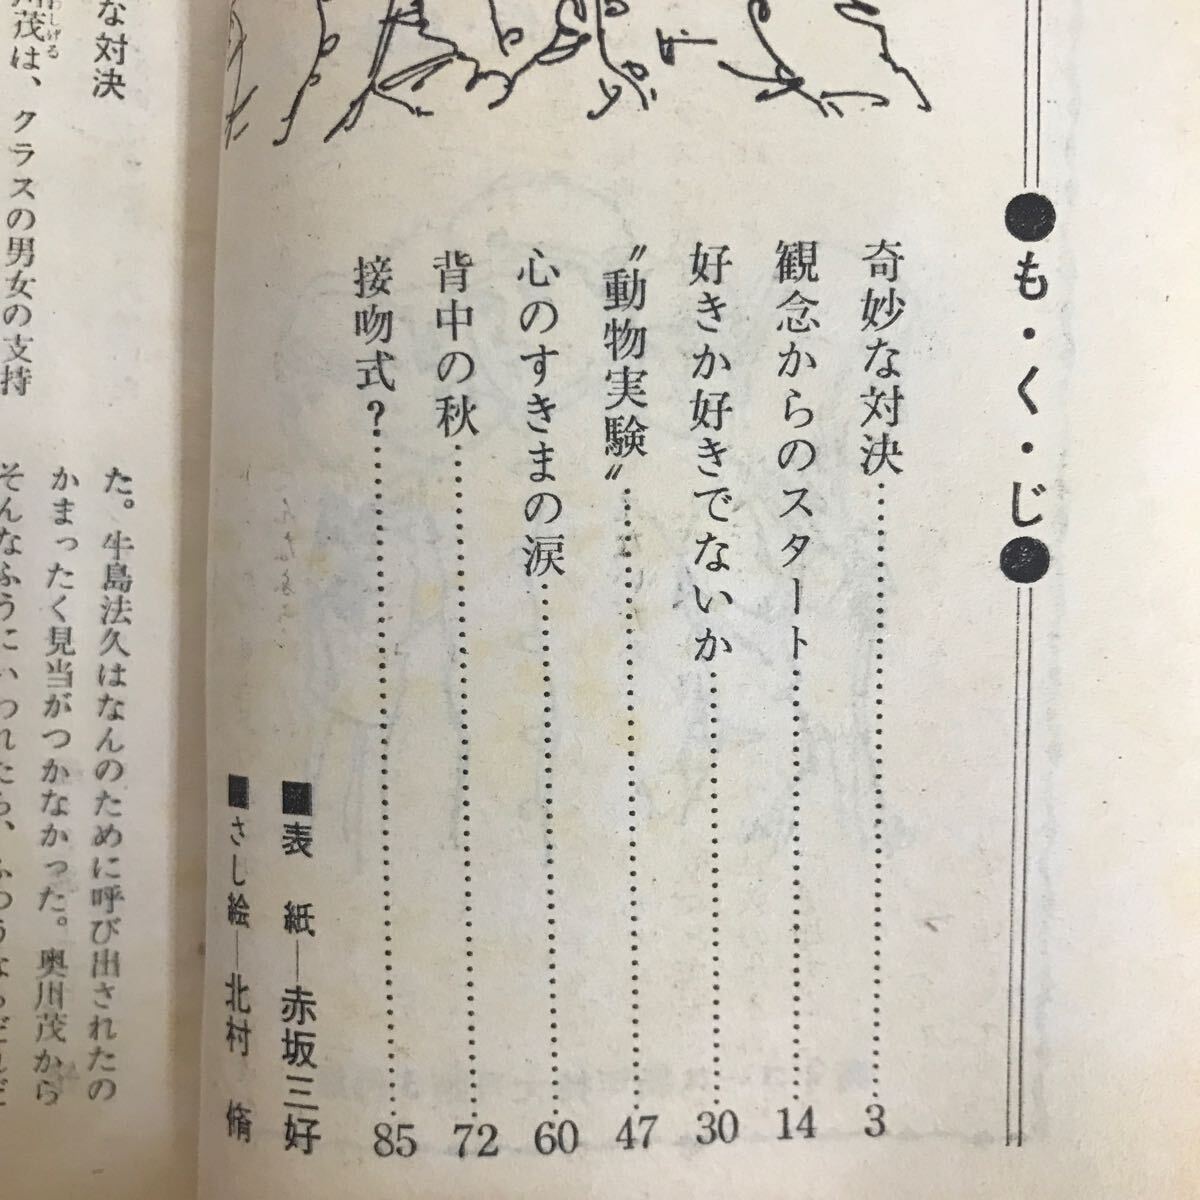 ●も・く・じ●
奇妙な対決……3
観念からのスタート……14
好きか好きでないか……30
〝動物実験〟……47
心のすきまの涙……60
背中の秋……72
接吻式?……85
■表　紙―赤坂三好
■さし絵―北村　脩
な対決
川茂は、クラスの男女の支持
しげる
た。牛島法久はなんのために呼び出されたの
かまったく見当がつかなかった。奥川茂から
そんなふうにいわれたら、ふつうならだれだ